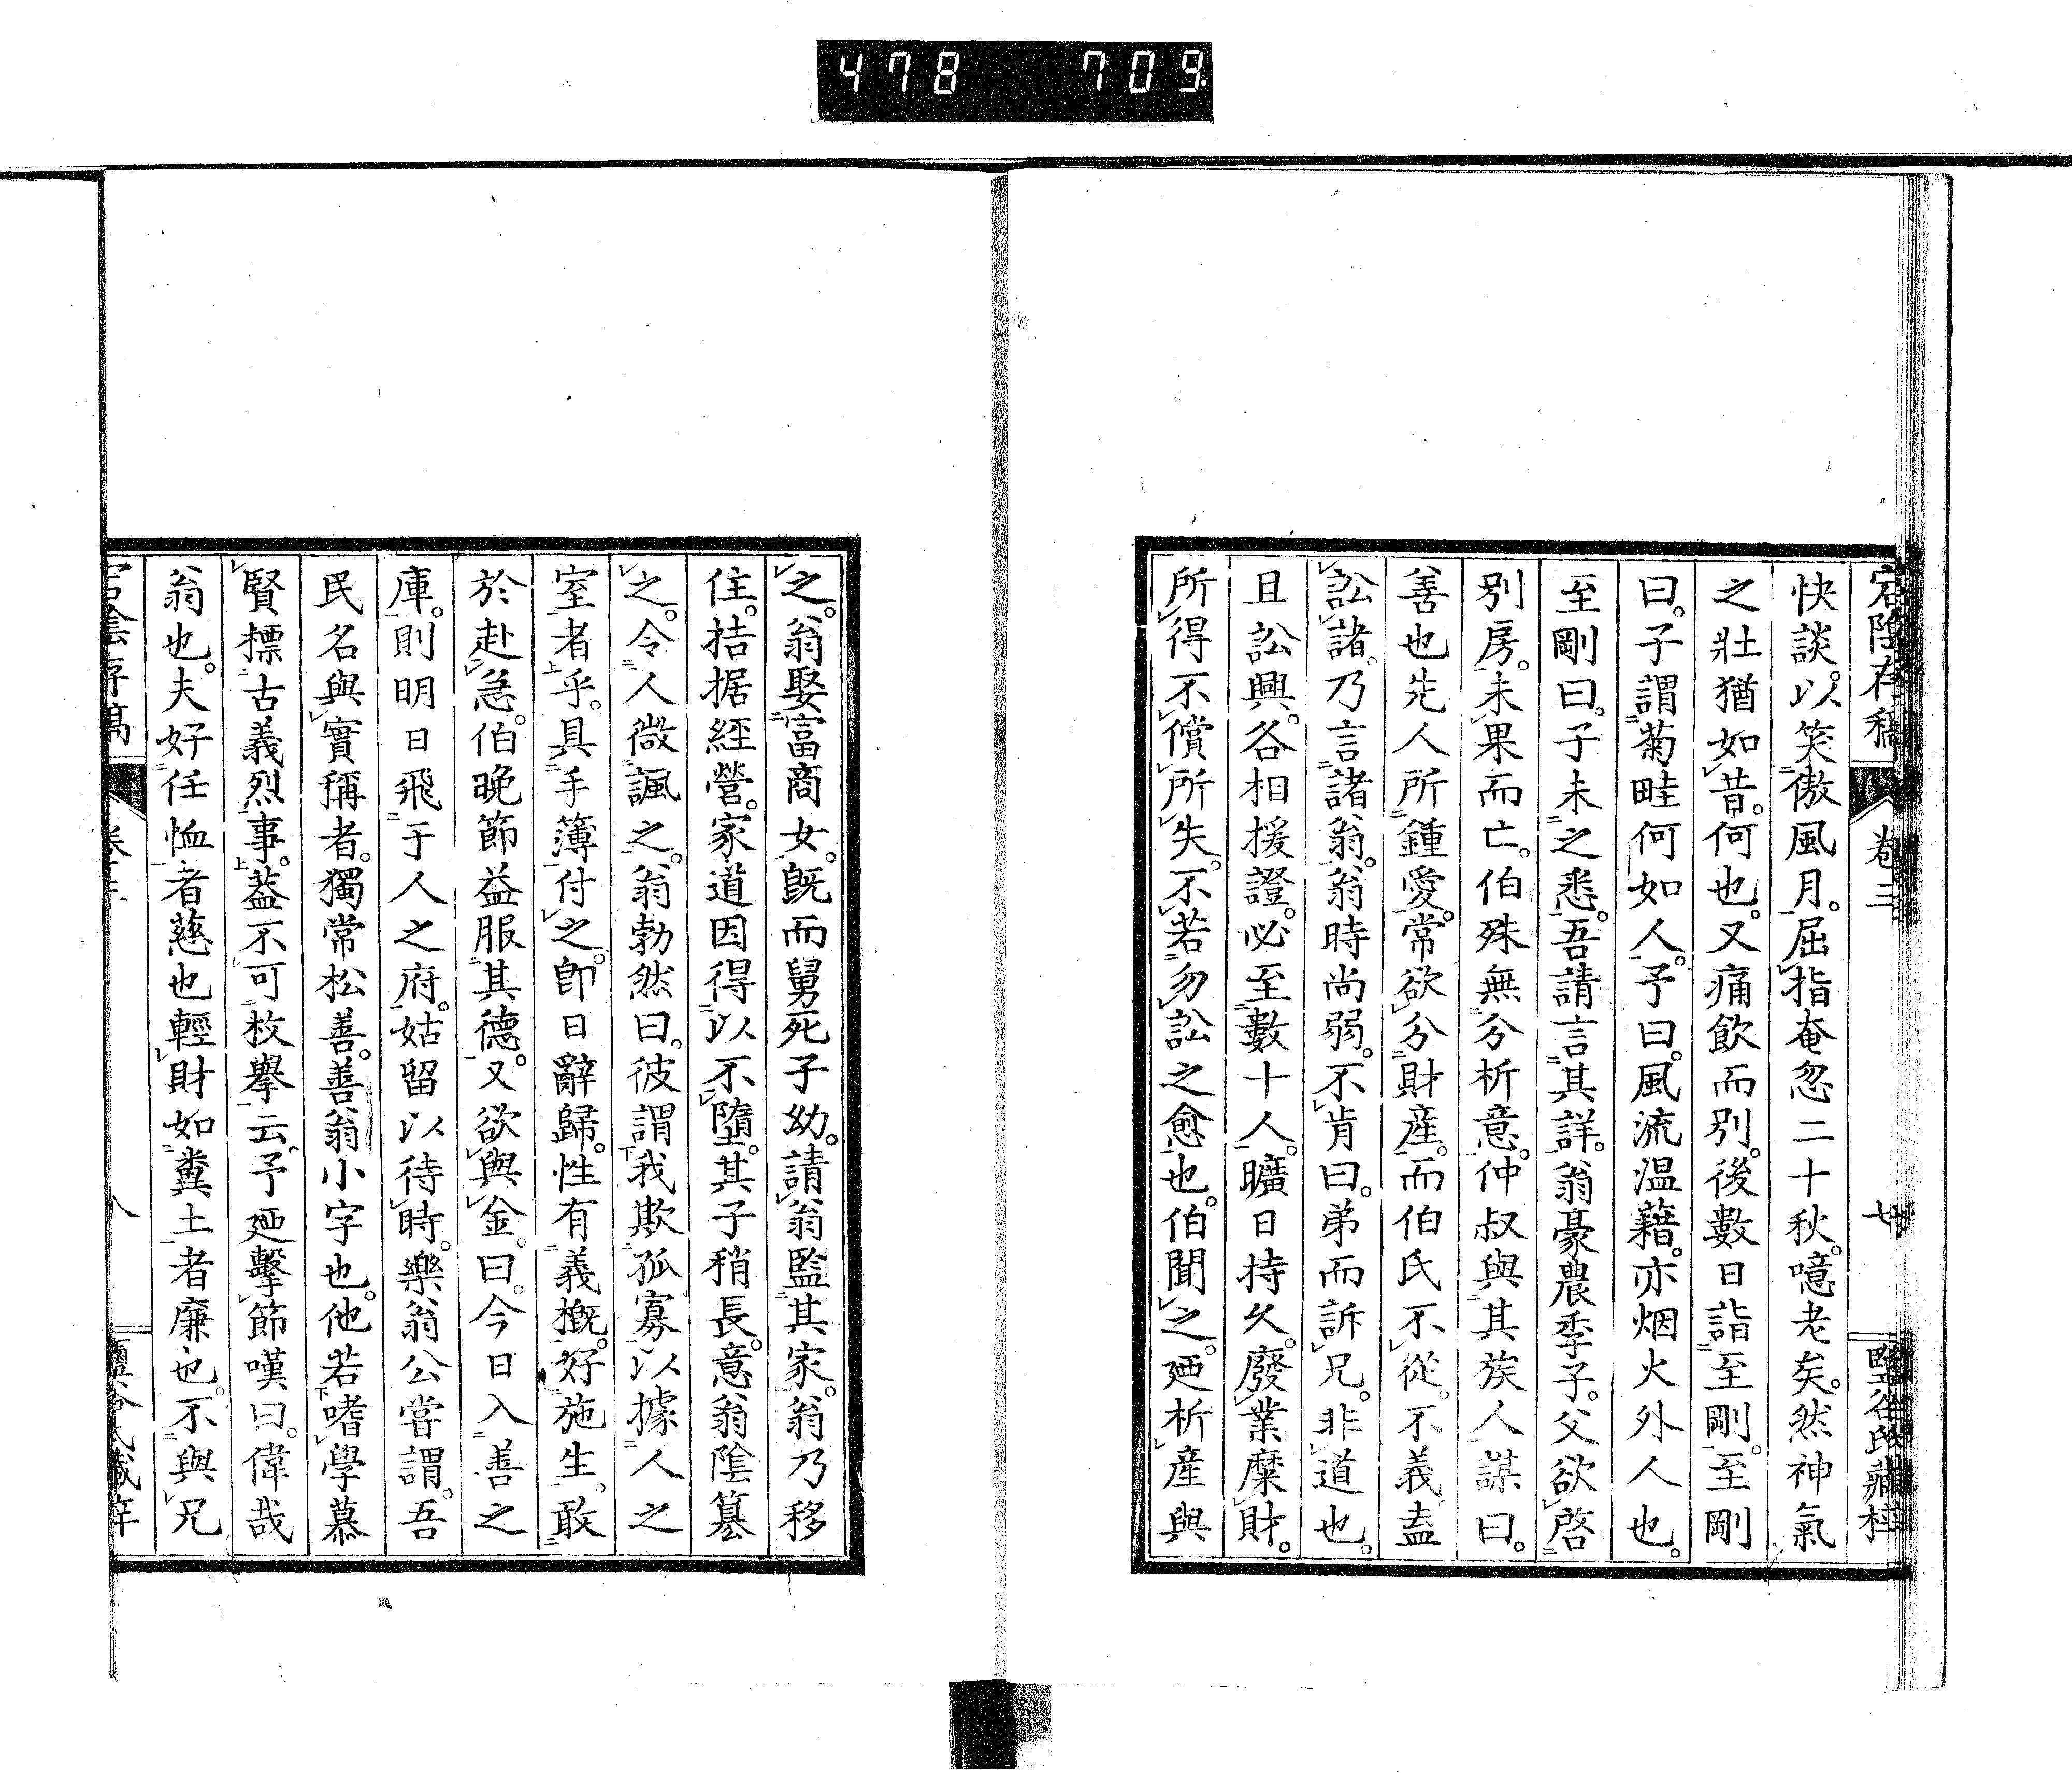 478 709
宕陰存稿 卷三 七 鹽谷氏藏梓
快談。以笑傲風月。屈指奄忽二十秋。噫老矣。然神氣
之壯猶如昔。何也。又痛飲而別。後數日詣至剛。至剛
曰。子謂菊畦何如人。予曰。風流温藉。亦烟火外人也。
至剛曰。子未之悉。吾請言其詳。翁豪農季子。父欲啓
別房。未果而亡。伯殊無分析意。仲叔與其族人謀曰。
善也先人所鍾愛。常欲分財產。而伯氏不從。不義盍
訟諸。乃言諸翁。翁時尚弱。不肯曰。弟而訴兄。非道也。
且訟興。各相援證。必至數十人。曠日持久。廢業糜財。
所得不償所失。不若勿訟之愈也。伯聞之。廼析產與
之。翁娶富商女。既而舅死子幼。請翁監其家。翁乃移
住。拮据經營。家道因得以不墮。其子稍長。意翁陰簒
之。令人微諷之。翁勃然曰。彼謂我欺孤寡以據人之
室者乎。具手簿付之。卽日辭歸。性有義槪。好施生。敢
於赴急。伯晩節益服其德。又欲與金。曰。今日入善之
庫。則明日飛于人之府。姑留以待時。樂翁公嘗謂。吾
民名與實稱者。獨常松善。善翁小字也。他若嗜學慕
賢標古義烈事。蓋不可枚擧云。予廼擊節嘆曰。偉哉
翁也。夫好任恤者慈也輕財如糞土者廉也。不與兄
存稿 八